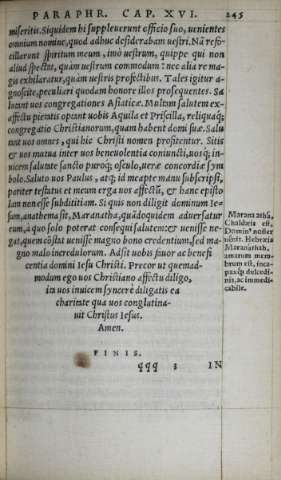 PARAPHR. CAP. XVI. 245
miseritis. Siquidem hi suppleuerunt officio suo, uenientes
omnium nomine, quod adhuc desiderabam uestri. Nā refo-
cillarunt spiritum meum, imò uestrum, quippe qui non
aliud spectat, quàm uestrum commodum: nec alia re ma-
gis exhilaratur, quàm uestris profectibus. Tales igitur a-
gnoscite, peculiari quodam honore illos prosequentes. Sa
lutant uos congregationes Asiaticæ. Multam salutem ex-
affectu pientis optant uobis Aquila et Priscilla, reliquaq;
congregatio Christianorum, quam habent domi suæ. Salu
tant uos omnes, qui hic Christi nomen profitentur. Sitis
& uos mutua inter uos beneuolentia coniuncti, uosq; in-
uicem salutate sancto puroq; osculo, ueræ concordiæ sym
bolo. Saluto uos Paulus, atq; id meapte manu subscripsi,
pariter testatus et meum erga uos affectū, & hanc episto
lam non esse subdititiam. Si quis non diligit dominum Ie-
sum, anathema sit, Maranatha, quādoquidem aduersatur
eum, à quo solo poterat consequi salutem: & uenisse ne-
gat, quem cōstat uenisse magno bono credentium, sed ma-
gno malo incredulorum. Adsit uobis fauor ac benefi
centia domini Iesu Christi. Precor ut quemad-
modum ego uos Christiano affectu diligo,
ita uos inuicem syncerè diligatis ea
charitate qua uos conglutina-
uit Christus Iesus.
Amen.
Maran athà,
Chaldæis est,
Dominº noster
uenit. Hebræis
Marazathah,
amarum mem
brum est, inca-
pax q; dulcedi-
nis, ac immedi-
cabile.
FINIS.
qqq 3 IN